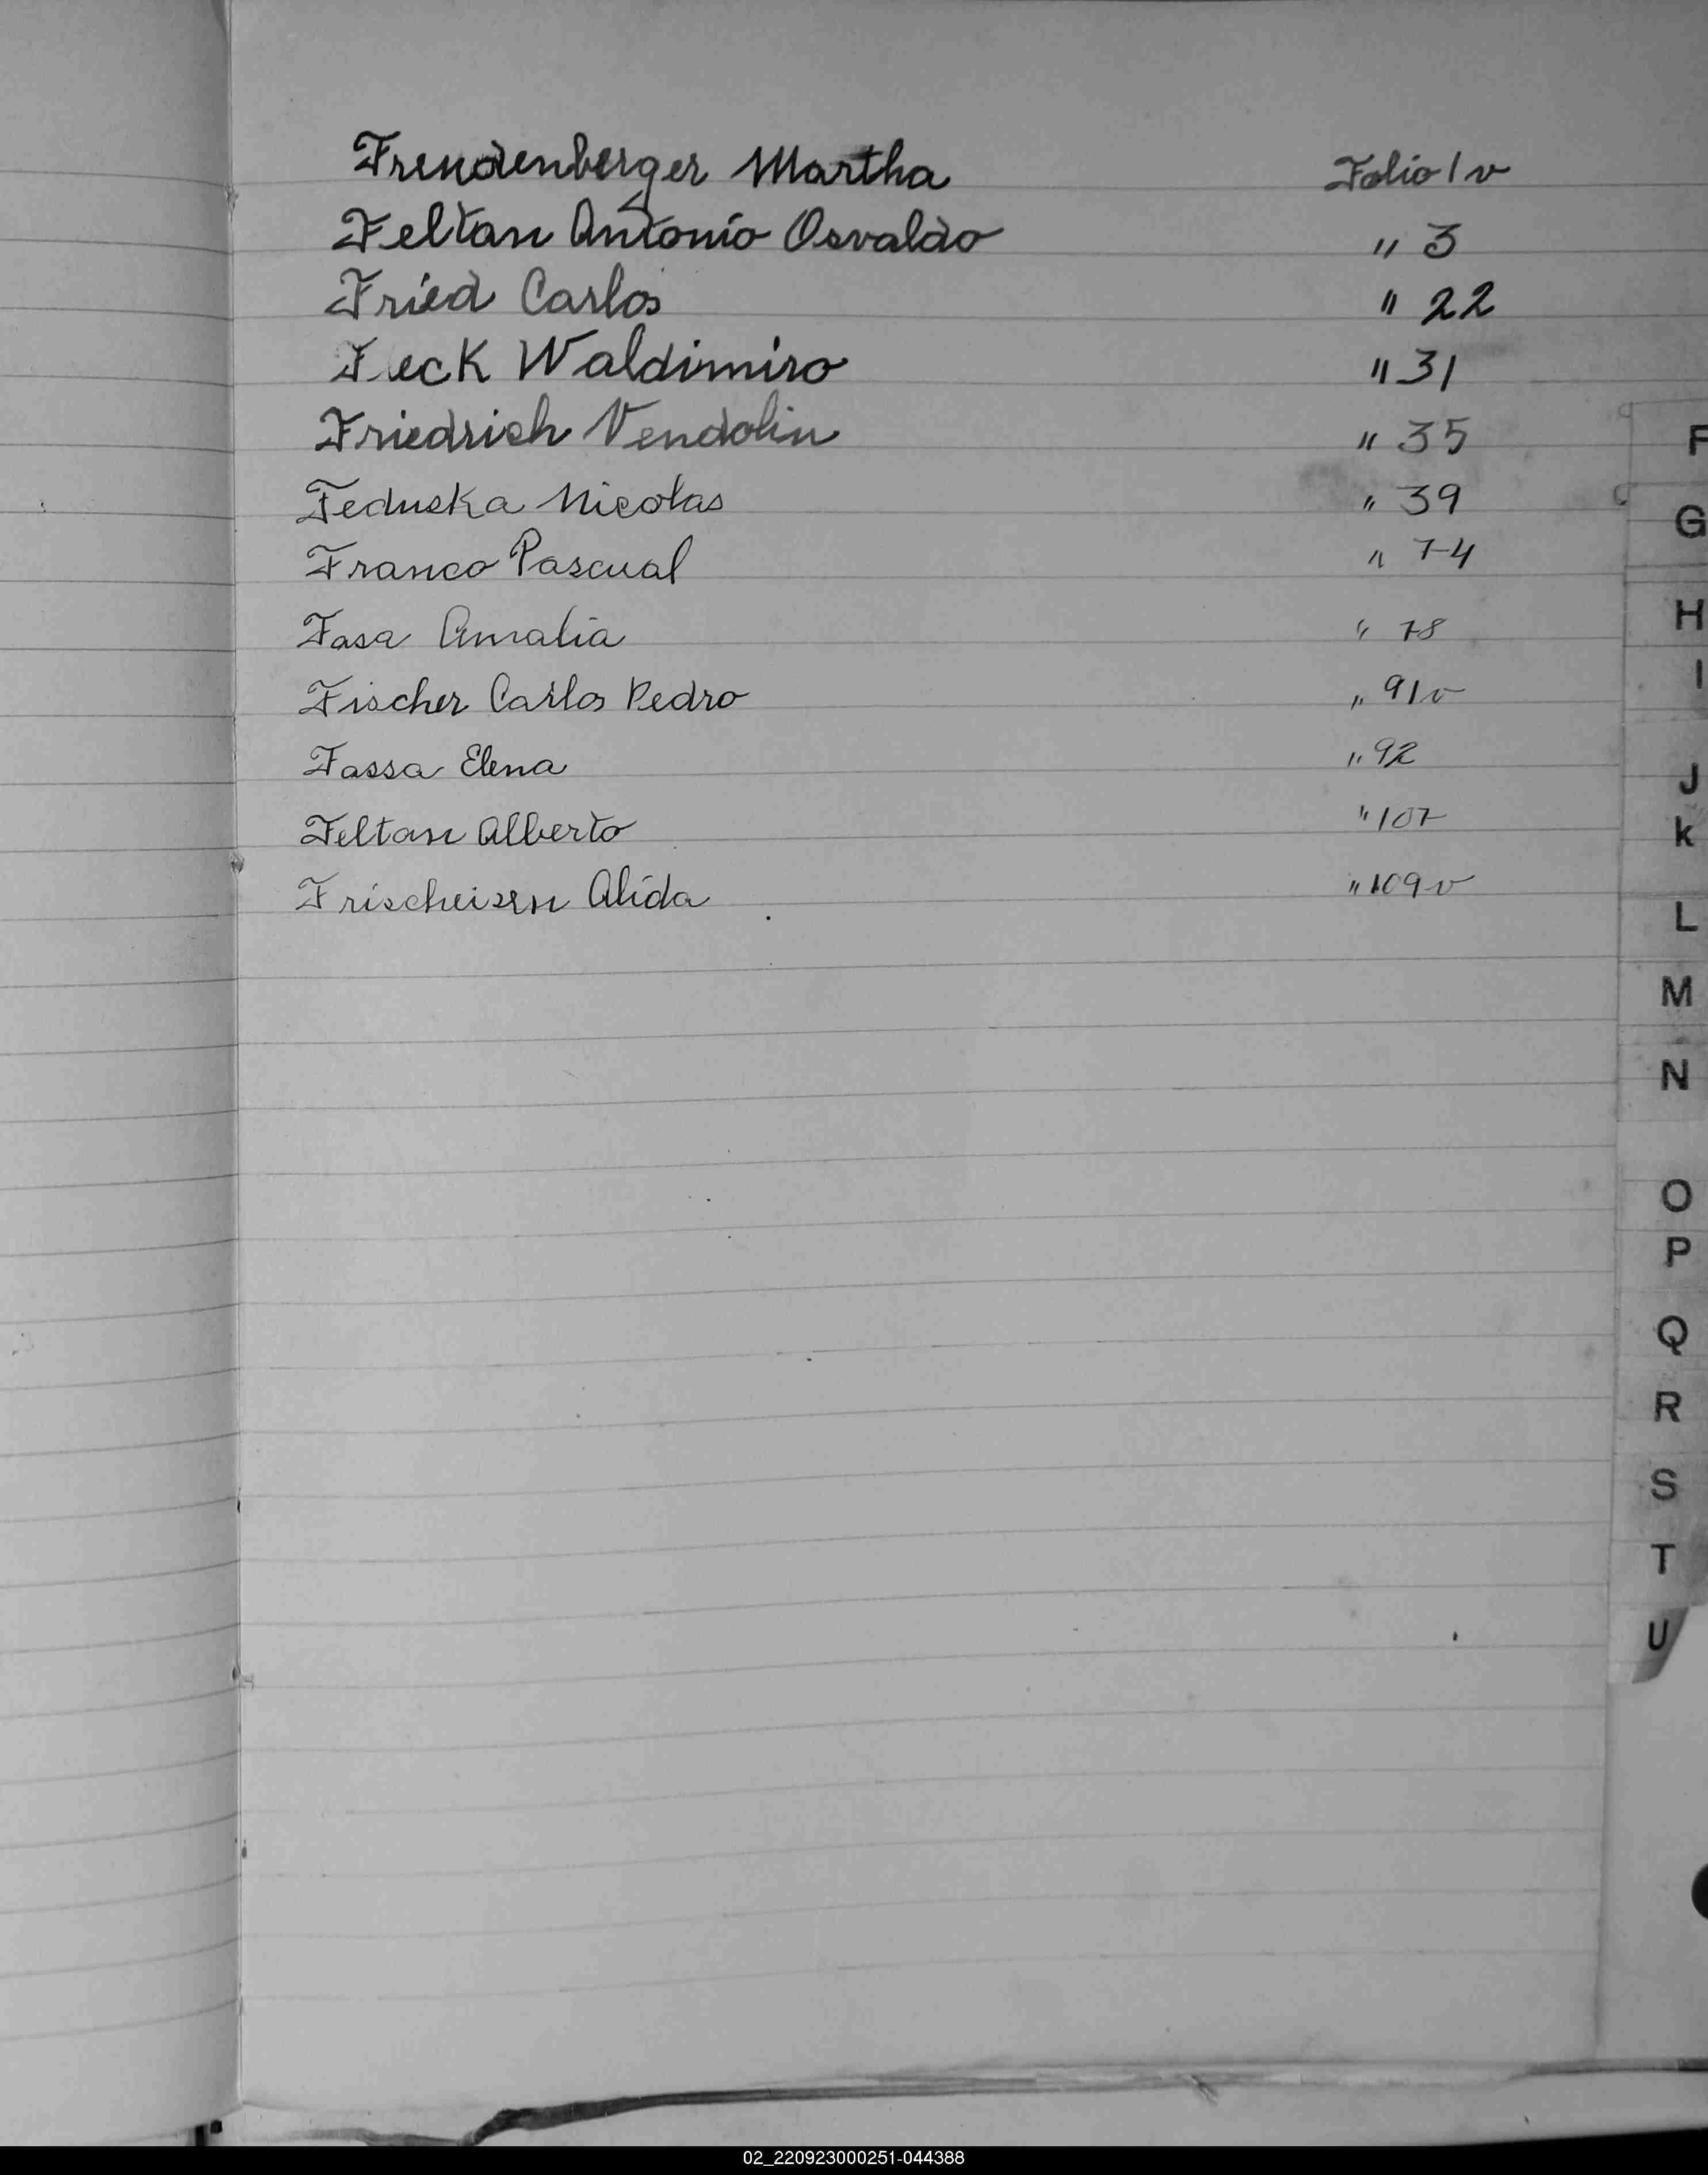 Freudenberger Martha Folio 1 v
Feltan Antonio Osvaldo " 3
Fried Carlos " 22
Feck Waldimiro " 31
Friedrich Vendolin " 35
Feduska Nicolas " 39
Franco Pascual " 74
Fasa Amalia " 78
Fischer Carlos Pedro " 91 v
Fassa Elena " 92
Feltan Alberto " 107
Frischeisen Alida " 109 v
F
G
H
I
J
k
L
M
N
O
P
Q
R
S
T
U
02_220923000251-044388